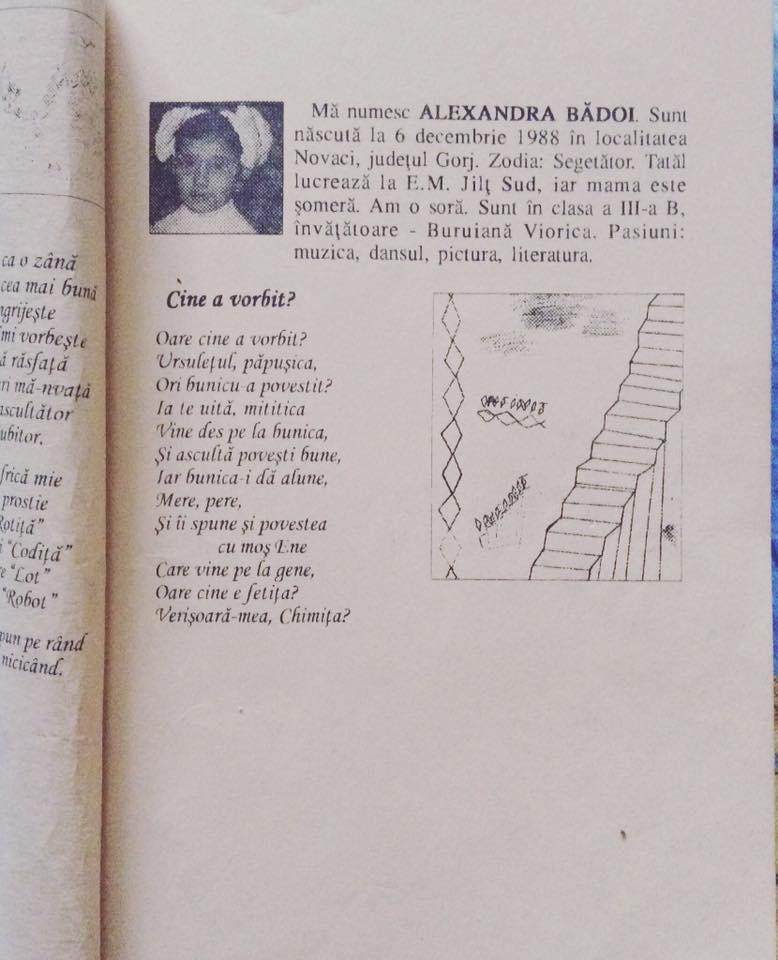 ca o zână
cea mai bună
ngrijește
îmi vorbește
ă răsfață
ri mă-nvață
ascultător
ubitor.
frică mie
prostie
Rotiță"
i "Codiță"
e "Lot"
"Robot"
pun pe rând
nicicând.
Mă numesc ALEXANDRA BĂDOI. Sunt
născută la 6 decembrie 1988 în localitatea
Novaci, județul Gorj. Zodia: Segetător. Tatăl
lucrează la E.M. Jilț Sud, iar mama este
şomeră. Am o soră. Sunt în clasa a III-a B,
învățătoare - Buruiană Viorica. Pasiuni:
muzica, dansul, pictura, literatura.
Cine a vorbit?
Oare cine a vorbit?
Ursulețul, păpușica,
Ori bunicu-a povestit?
Ia te uită, mititica
Vine des pe la bunica,
Și ascultă povești bune,
Iar bunica-i dă alune,
Mere, pere,
Și îi spune și povestea
cu moș Ene
Care vine pe la gene,
Oare cine e fetița?
Verișoară-mea, Chimița?